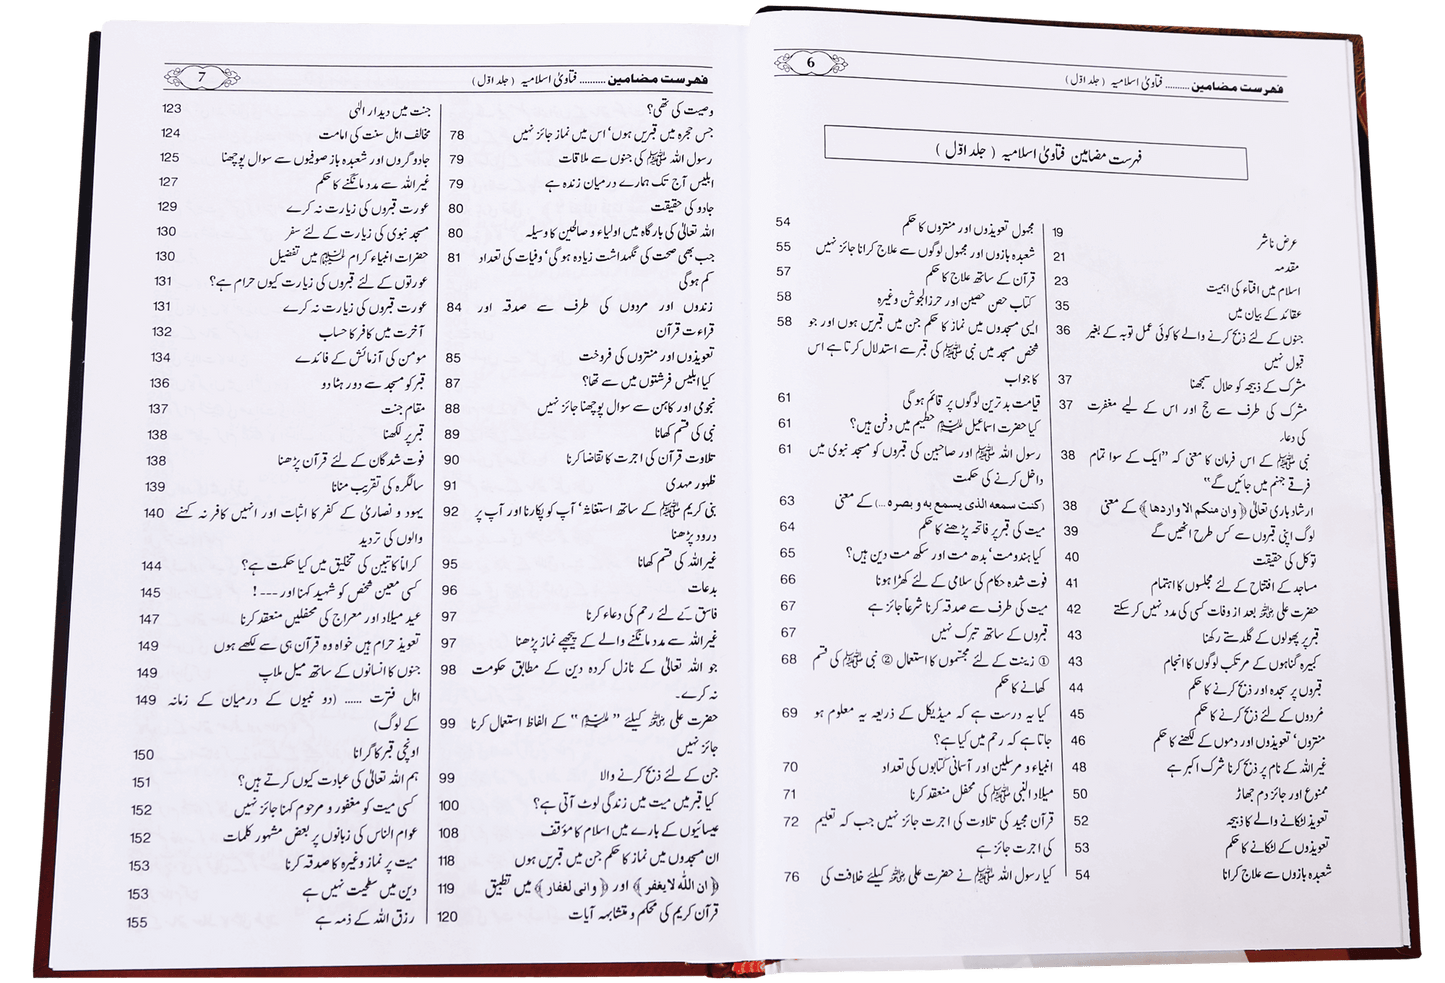 فهرست مضامین .......... فتاویٰ اسلامیہ ( جلد اوّل)
6
فہرست مضامین فتاویٰ اسلامیہ ( جلد اوّل )
عرض ناشر 19
مقدمہ 21
اسلام میں افتاء کی اہمیت 23
عقائد کے بیان میں 35
جنوں کے لئے ذبح کرنے والے کا کوئی عمل توبہ کے بغیر 36
قبول نہیں
مشرک کے ذبیحہ کو حلال سمجھنا 37
مشرک کی طرف سے حج اور اس کے لیے مغفرت 37
کی دعار
نبی ﷺ کے اس فرمان کا معنی کہ "ایک کے سوا تمام 38
فرقے جہنم میں جائیں گے"
ارشاد باری تعالیٰ ﴿وان منکم الا واردها﴾ کے معنی 38
لوگ اپنی قبروں سے کس طرح اٹھیں گے 39
توکل کی حقیقت 40
مساجد کے افتتاح کے لئے مجلسوں کا اہتمام 41
حضرت علی ؓ بعد از وفات کسی کی مدد نہیں کر سکتے 42
قبر پر پھولوں کے گلدستے رکھنا 43
کبیرہ گناہوں کے مرتکب لوگوں کا انجام 43
قبروں پر سجدہ اور ذبح کرنے کا حکم 44
مُردوں کے لئے ذبح کرنے کا حکم 45
منتروں' تعویذوں اور دموں کے لکھنے کا حکم 46
غیر اللہ کے نام پر ذبح کرنا شرک اکبر ہے 48
ممنوع اور جائز دم جھاڑ 50
تعویذ لٹکانے والے کا ذبیحہ 52
تعویذوں کے لٹکانے کا حکم 53
شعبدہ بازوں سے علاج کرانا 54
مجہول تعویذوں اور منتروں کا حکم 54
شعبدہ بازوں اور مجہول لوگوں سے علاج کرانا جائز نہیں 55
قرآن کے ساتھ علاج کا حکم 57
کتاب حصن حصین اور حرز الجوشن وغیرہ 58
ایسی مسجدوں میں نماز کا حکم جن میں قبریں ہوں اور جو 58
شخص مسجد میں نبی ﷺ کی قبر سے استدلال کرتا ہے اس
کا جواب
قیامت بد ترین لوگوں پر قائم ہو گی 61
کیا حضرت اسماعیل ؑ حطیم میں دفن ہیں؟ 61
رسول اللہ ﷺ اور صاحبین کی قبروں کو مسجد نبوی میں 61
داخل کرنے کی حکمت
(کنت سمعه الذی یسمع به و بصره ...) کے معنی 63
میت کی قبر پر فاتحہ پڑھنے کا حکم 64
کیا ہندومت' بدھ مت اور سکھ مت دین ہیں؟ 65
فوت شدہ حکام کی سلامی کے لئے کھڑا ہونا 66
میت کی طرف سے صدقہ کرنا شرعاً جائز ہے 67
قبروں کے ساتھ تبرک نہیں 67
① زینت کے لئے مجسموں کا استعمال ② نبی ﷺ کی قسم 68
کھانے کا حکم
کیا یہ درست ہے کہ میڈیکل کے ذریعہ یہ معلوم ہو 69
جاتا ہے کہ رحم میں کیا ہے؟
انبیاء و مرسلین اور آسمانی کتابوں کی تعداد 70
میلاد النبی ﷺ کی محفل منعقد کرنا 71
قرآن مجید کی تلاوت کی اجرت جائز نہیں جب کہ تعلیم 72
کی اجرت جائز ہے
کیا رسول اللہ ﷺ نے حضرت علی ؓ کیلئے خلافت کی 76
فهرست مضامین .......... فتاویٰ اسلامیہ ( جلد اوّل)
7
وصیت کی تھی؟
جس حجرہ میں قبریں ہوں' اس میں نماز جائز نہیں 78
رسول اللہ ﷺ کی جنوں سے ملاقات 79
ابلیس آج تک ہمارے درمیان زندہ ہے 79
جادو کی حقیقت 80
اللہ تعالیٰ کی بارگاہ میں اولیاء و صالحین کا وسیلہ 80
جب بھی صحت کی نگہداشت زیادہ ہو گی' وفیات کی تعداد 81
کم ہو گی
زندوں اور مردوں کی طرف سے صدقہ اور 84
قراءت قرآن
تعویذوں اور منتروں کی فروخت 85
کیا ابلیس فرشتوں میں سے تھا؟ 87
نجومی اور کاہن سے سوال پوچھنا جائز نہیں 88
نبی کی قسم کھانا 89
تلاوت قرآن کی اجرت کا تقاضا کرنا 90
ظہور مہدی 91
نبی کریم ﷺ کے ساتھ استغاثہ' آپ کو پکارنا اور آپ پر 92
درود پڑھنا
غیر اللہ کی قسم کھانا 95
بدعات 96
فاسق کے لئے رحم کی دعاء کرنا 97
غیر اللہ سے مدد مانگنے والے کے پیچھے نماز پڑھنا 97
جو اللہ تعالیٰ کے نازل کردہ دین کے مطابق حکومت 98
نہ کرے۔
حضرت علی ؓ کیلئے "ؑ" کے الفاظ استعمال کرنا 99
جائز نہیں
جن کے لئے ذبح کرنے والا 99
کیا قبر میں میت میں زندگی لوٹ آتی ہے؟ 100
عیسائیوں کے بارے میں اسلام کا مؤقف 108
ان مسجدوں میں نماز کا حکم جن میں قبریں ہوں 118
﴿ان اللّٰه لا یغفر﴾ اور ﴿وانی لغفار﴾ میں تطبیق 119
قرآن کریم کی محکم و متشابہہ آیات 120
جنت میں دیدار الٰہی 123
مخالف اہل سنت کی امامت 124
جادو گروں اور شعبدہ باز صوفیوں سے سوال پوچھنا 125
غیر اللہ سے مدد مانگنے کا حکم 127
عورت قبروں کی زیارت نہ کرے 129
مسجد نبوی کی زیارت کے لئے سفر 130
حضرات انبیاء کرام ؑ میں تفضیل 130
عورتوں کے لئے قبروں کی زیارت کیوں حرام ہے؟ 131
عورت قبروں کی زیارت نہ کرے 131
آخرت میں کافر کا حساب 132
مومن کی آزمائش کے فائدے 134
قبر کو مسجد سے دور ہٹا دو 136
مقام جنت 137
قبر پر لکھنا 138
فوت شدگان کے لئے قرآن پڑھنا 138
سالگرہ کی تقریب منانا 139
یہود و نصاریٰ کے کفر کا اثبات اور انہیں کافر نہ کہنے 140
والوں کی تردید
کراماً کاتبین کی تخلیق میں کیا حکمت ہے؟ 144
کسی معین شخص کو شہید کہنا اور --- ! 145
عید میلاد اور معراج کی محفلیں منعقد کرنا 147
تعویذ حرام ہیں خواہ وہ قرآن ہی سے لکھے ہوں 149
جنوں کا انسانوں کے ساتھ میل ملاپ 149
اہل فترت ...... (دو نبیوں کے درمیان کے زمانہ 149
کے لوگ)
اونچی قبر کا گرانا 150
ہم اللہ تعالیٰ کی عبادت کیوں کرتے ہیں؟ 151
کسی میت کو مغفور و مرحوم کہنا جائز نہیں 152
عوام الناس کی زبانوں پر بعض مشہور کلمات 152
میت پر نماز وغیرہ کا صدقہ کرنا 153
دین میں سطحیت نہیں ہے 153
رزق اللہ کے ذمہ ہے 155